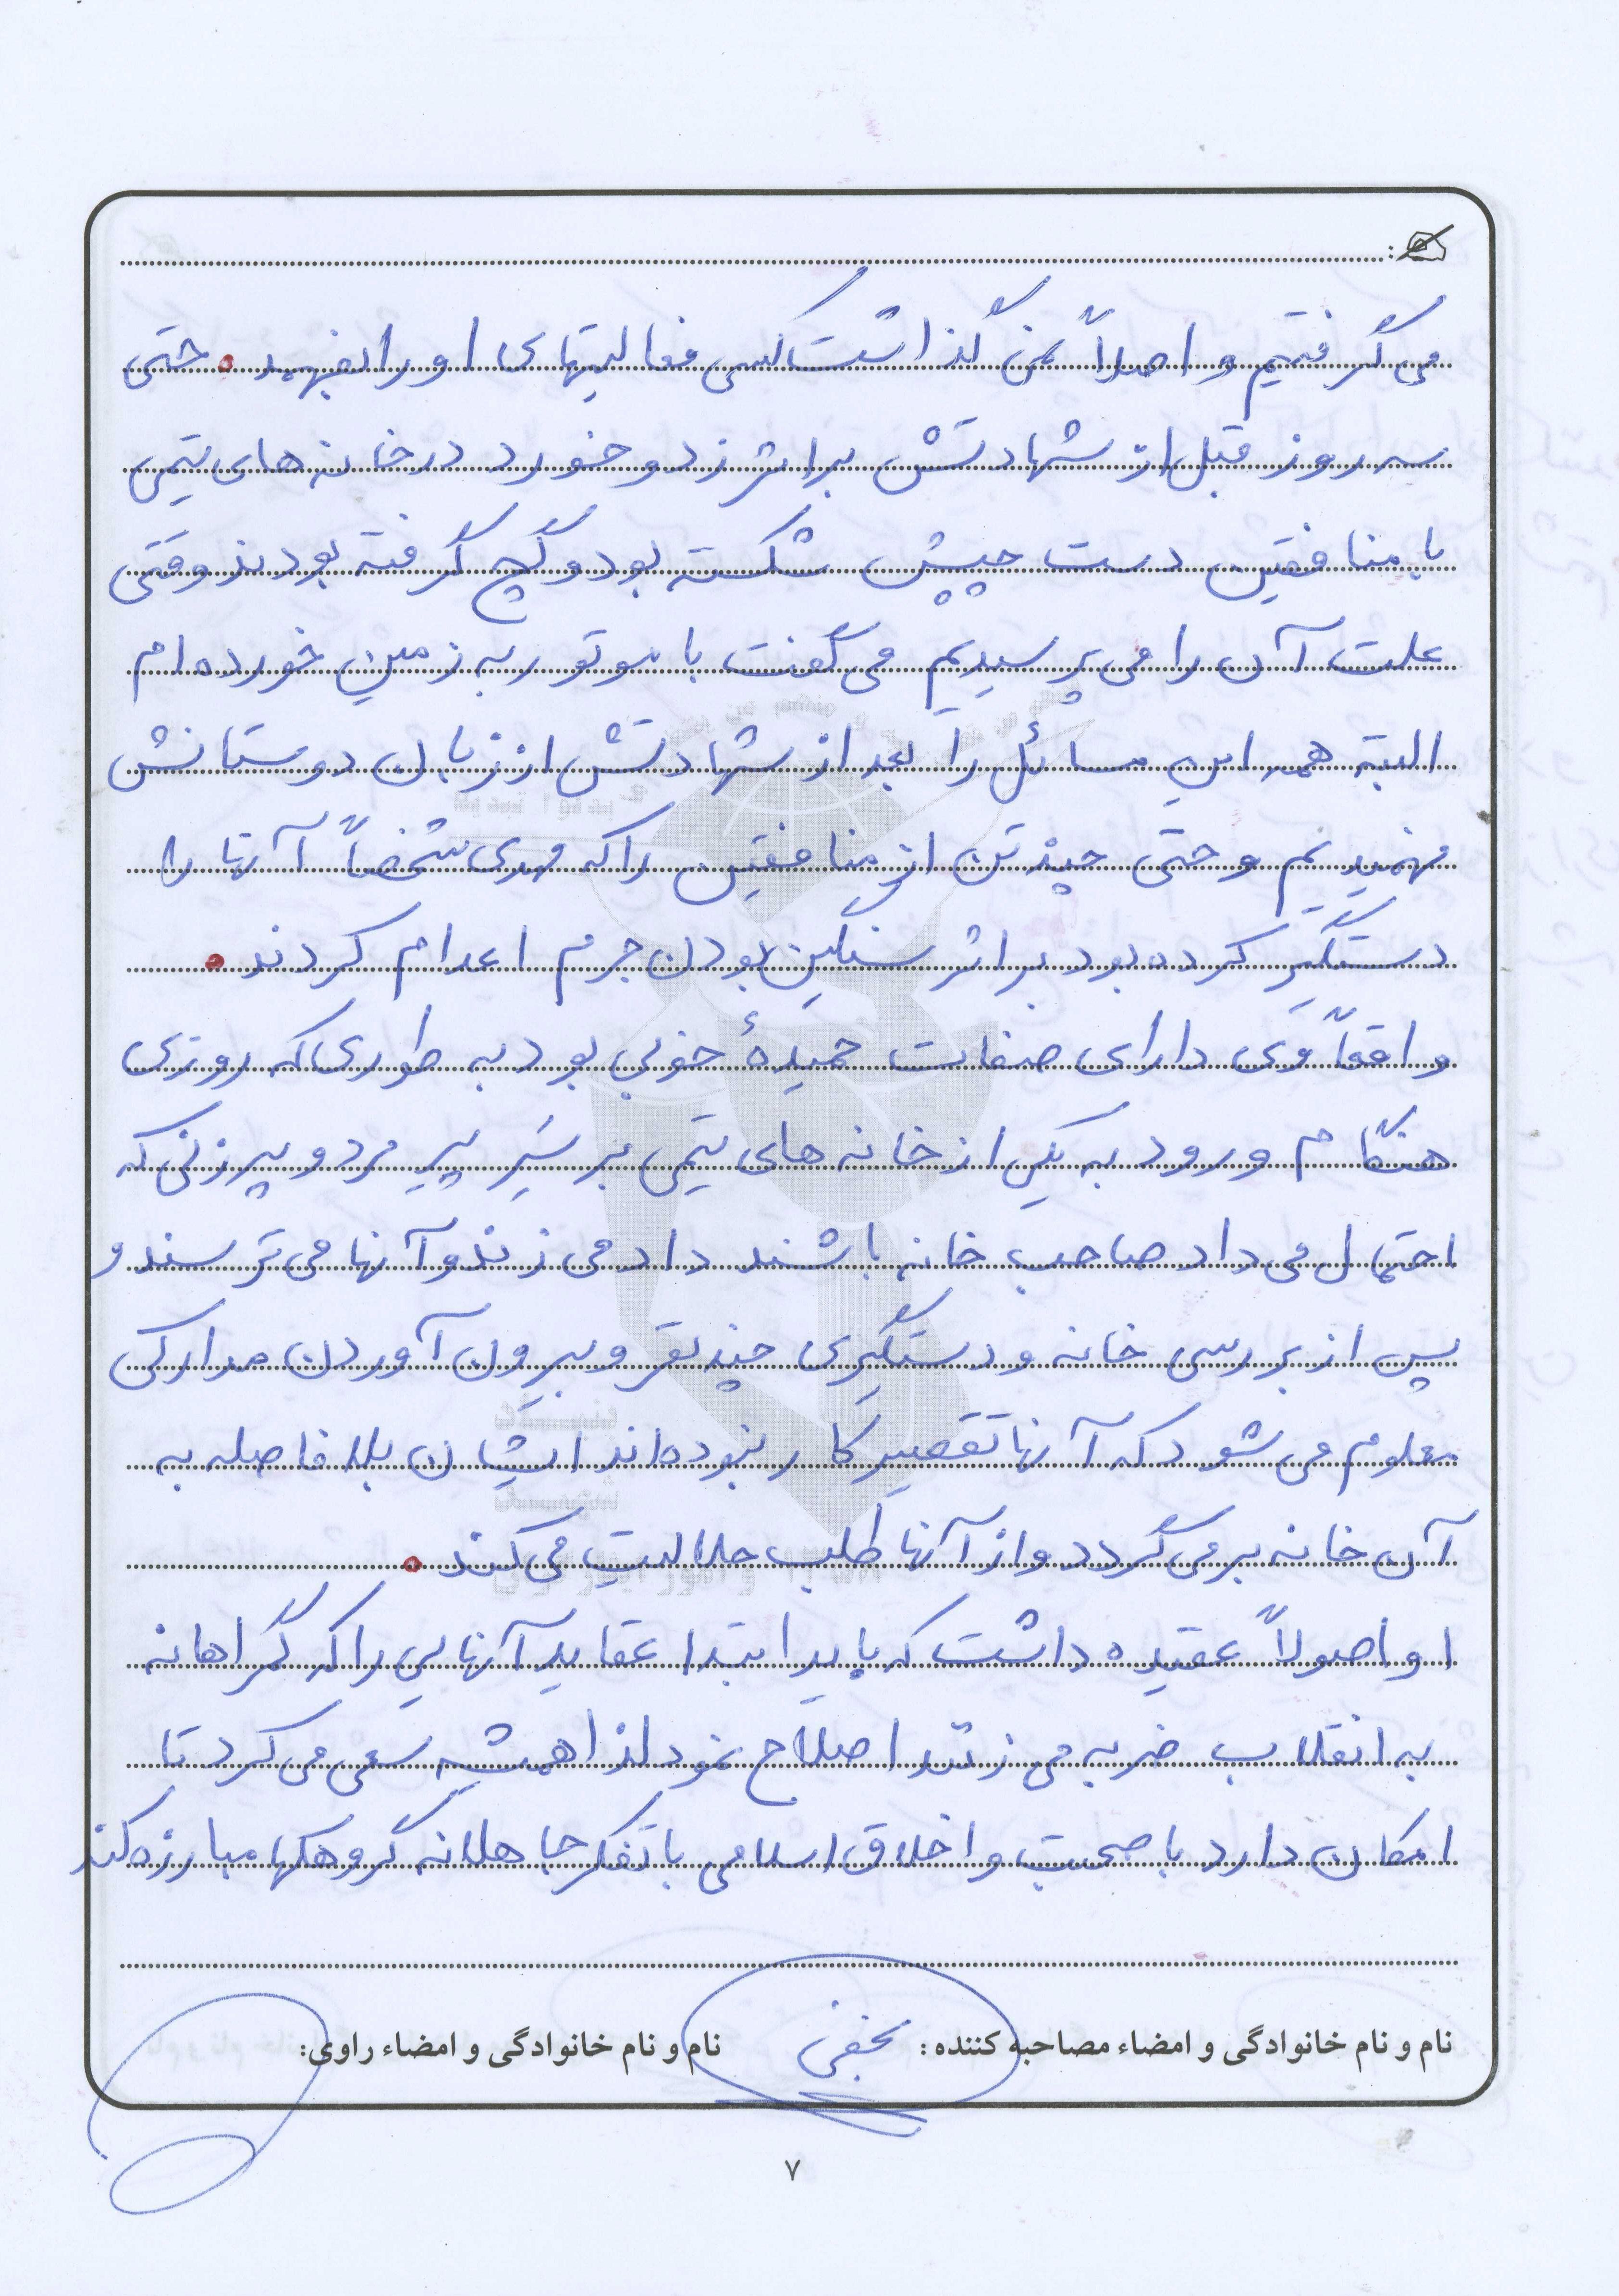 می گرفتیم و اصلاً نمی گذاشت کسی فعالیتهای او را بفهمد. حتی
سه روز قبل از شهادتش بر اثر زد و خورد در خانه های تیمی
با منافقین دست چپش شکسته بود و گچ گرفته بودند وقتی
علت آن را می پرسیدیم می گفت با موتور به زمین خورده ام
البته همه این مسائل را بعد از شهادتش از زبان دوستانش
فهمیدیم و حتی چند تن از منافقین را که مهدی شخصاً آنها را
دستگیر کرده بود بر اثر سنگین بودن جرم اعدام کردند.
واقعاً وی دارای صفات حمیدهٔ خوبی بود به طوری که روزی
هنگام ورود به یکی از خانه های تیمی بر سَرِ پیر مرد و پیرزنی که
احتمال می داد صاحب خانه باشند داد می زند و آنها می ترسند و
پس از بررسی خانه و دستگیری چند نفر و بیرون آوردن مدارکی
معلوم می شود که آنها تقصیر کار نبوده اند ایشان بلا فاصله به
آن خانه برمی گردد و از آنها طلب حلالیت می کند.
او اصولاً عقیده داشت که باید ابتدا عقاید آنهایی را که گمراهانه
به انقلاب ضربه می زنند اصلاح نمود لذا همیشه سعی می کرد تا
امکان دارد با صحبت و اخلاق اسلامی با تفکر جاهلانه گروهکها مبارزه کند
نام و نام خانوادگی و امضاء مصاحبه کننده: نجفی نام و نام خانوادگی و امضاء راوی:
۷